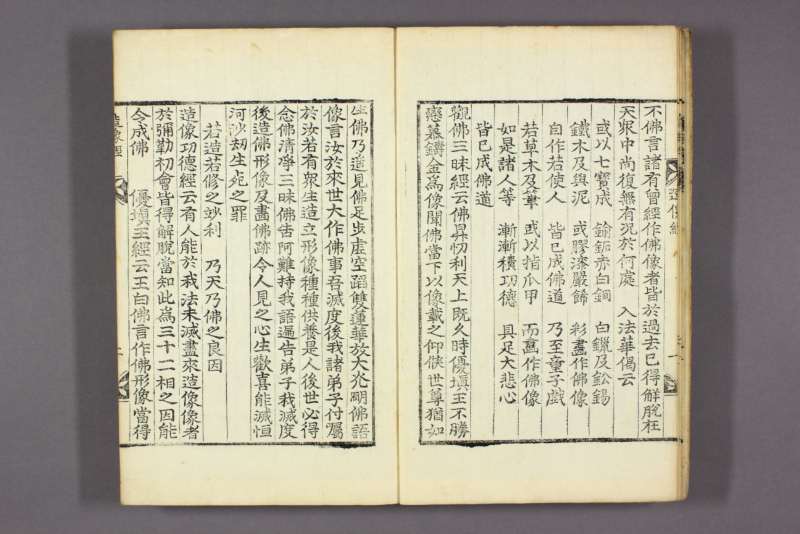 不佛言諸有曾經作佛像者皆於過去已得解脫在
天衆中尚復無有況於何處　入法華偈云
或以七寶成　鍮鉐赤白銅　白鑞及鉛錫
鐵木及與泥　或膠漆嚴飾　彩畫作佛像
自作若使人　皆已成佛道　乃至童子戲
若草木及葦　或以指爪甲　而畫作佛像
如是諸人等　漸漸積功德　具足大悲心
皆已成佛道
觀佛三昧經云佛昇忉利天上既久時優塡王不勝
戀慕鑄金爲像聞佛當下以像載之仰候世尊猶如
生佛乃遙見佛足步虛空蹈雙蓮華放大光明佛語
像言汝於來世大作佛事吾滅度後我諸弟子付囑
於汝若有衆生造立形像種種供養是人後世必得
念佛清淨三昧佛告阿難持我語遍告弟子我滅度
後造佛形像及畵佛跡令人見之心生歡喜能滅恒
河沙劫生死之罪
若造若修之妙利　乃天乃佛之良因
造像功德經云有人能於我法未滅盡來造像像者
於彌勒初會皆得解脫當知此爲三十二相之因能
令成佛　優塡王經云王白佛言作佛形像當得
造像經